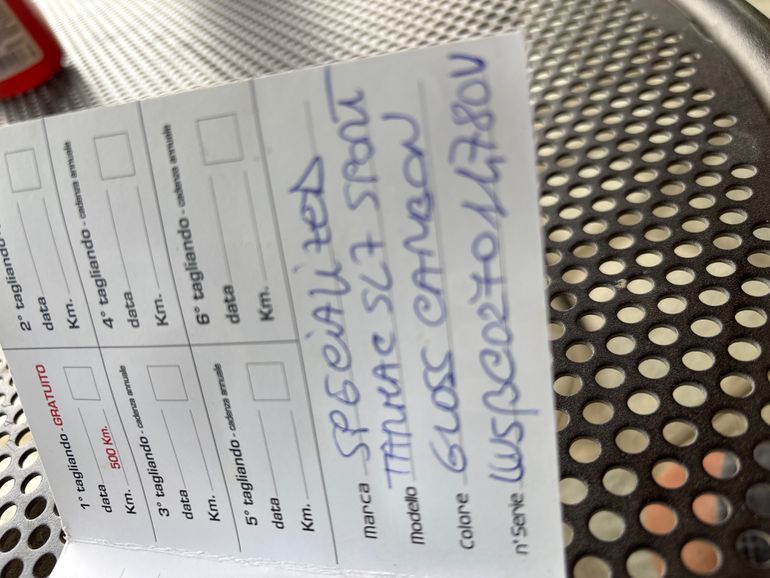 1° tagliando - GRATUITO
data
Km. 500 Km.
2° tagliando
data
Km.
3° tagliando - cadenza annuale
data
Km.
4° tagliando - cadenza annuale
data
Km.
5° tagliando - cadenza annuale
data
Km.
6° tagliando - cadenza annuale
data
Km.
Marca SPECIALIZED
Modello TARMAC SL7 SPORT
Colore GLOSS CARBON
n° Serie WSBC027014780V